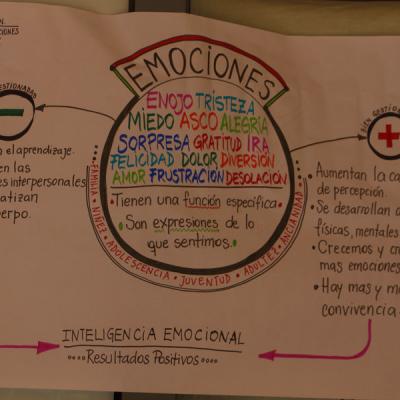 EMOCIONES
ENOJO TRISTEZA
MIEDO ASCO ALEGRÍA
SORPRESA GRATITUD IRA
FELICIDAD DOLOR DIVERSIÓN
AMOR FRUSTRACIÓN DESOLACIÓN
• Tienen una función específica •
• Son expresiones de lo
que sentimos. •
FAMILIA • NIÑEZ • ADOLESCENCIA • JUVENTUD • ADULTEZ • ANCIANIDAD
el aprendizaje.
en las
interpersonales
BIEN
+
Aumentan la
de percepción.
• Se desarrollan
físicas, mentales
• Crecemos y
mas emociones
• Hay mas y
convivencia
INTELIGENCIA EMOCIONAL
Resultados Positivos